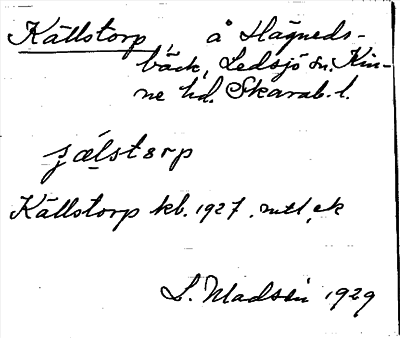 Källstorp, å Hägneds-
bäck, Ledsjö sn. Kin-
ne hd. Skarab. l.
Källstorp kb. 1927.
L. Madsén 1929